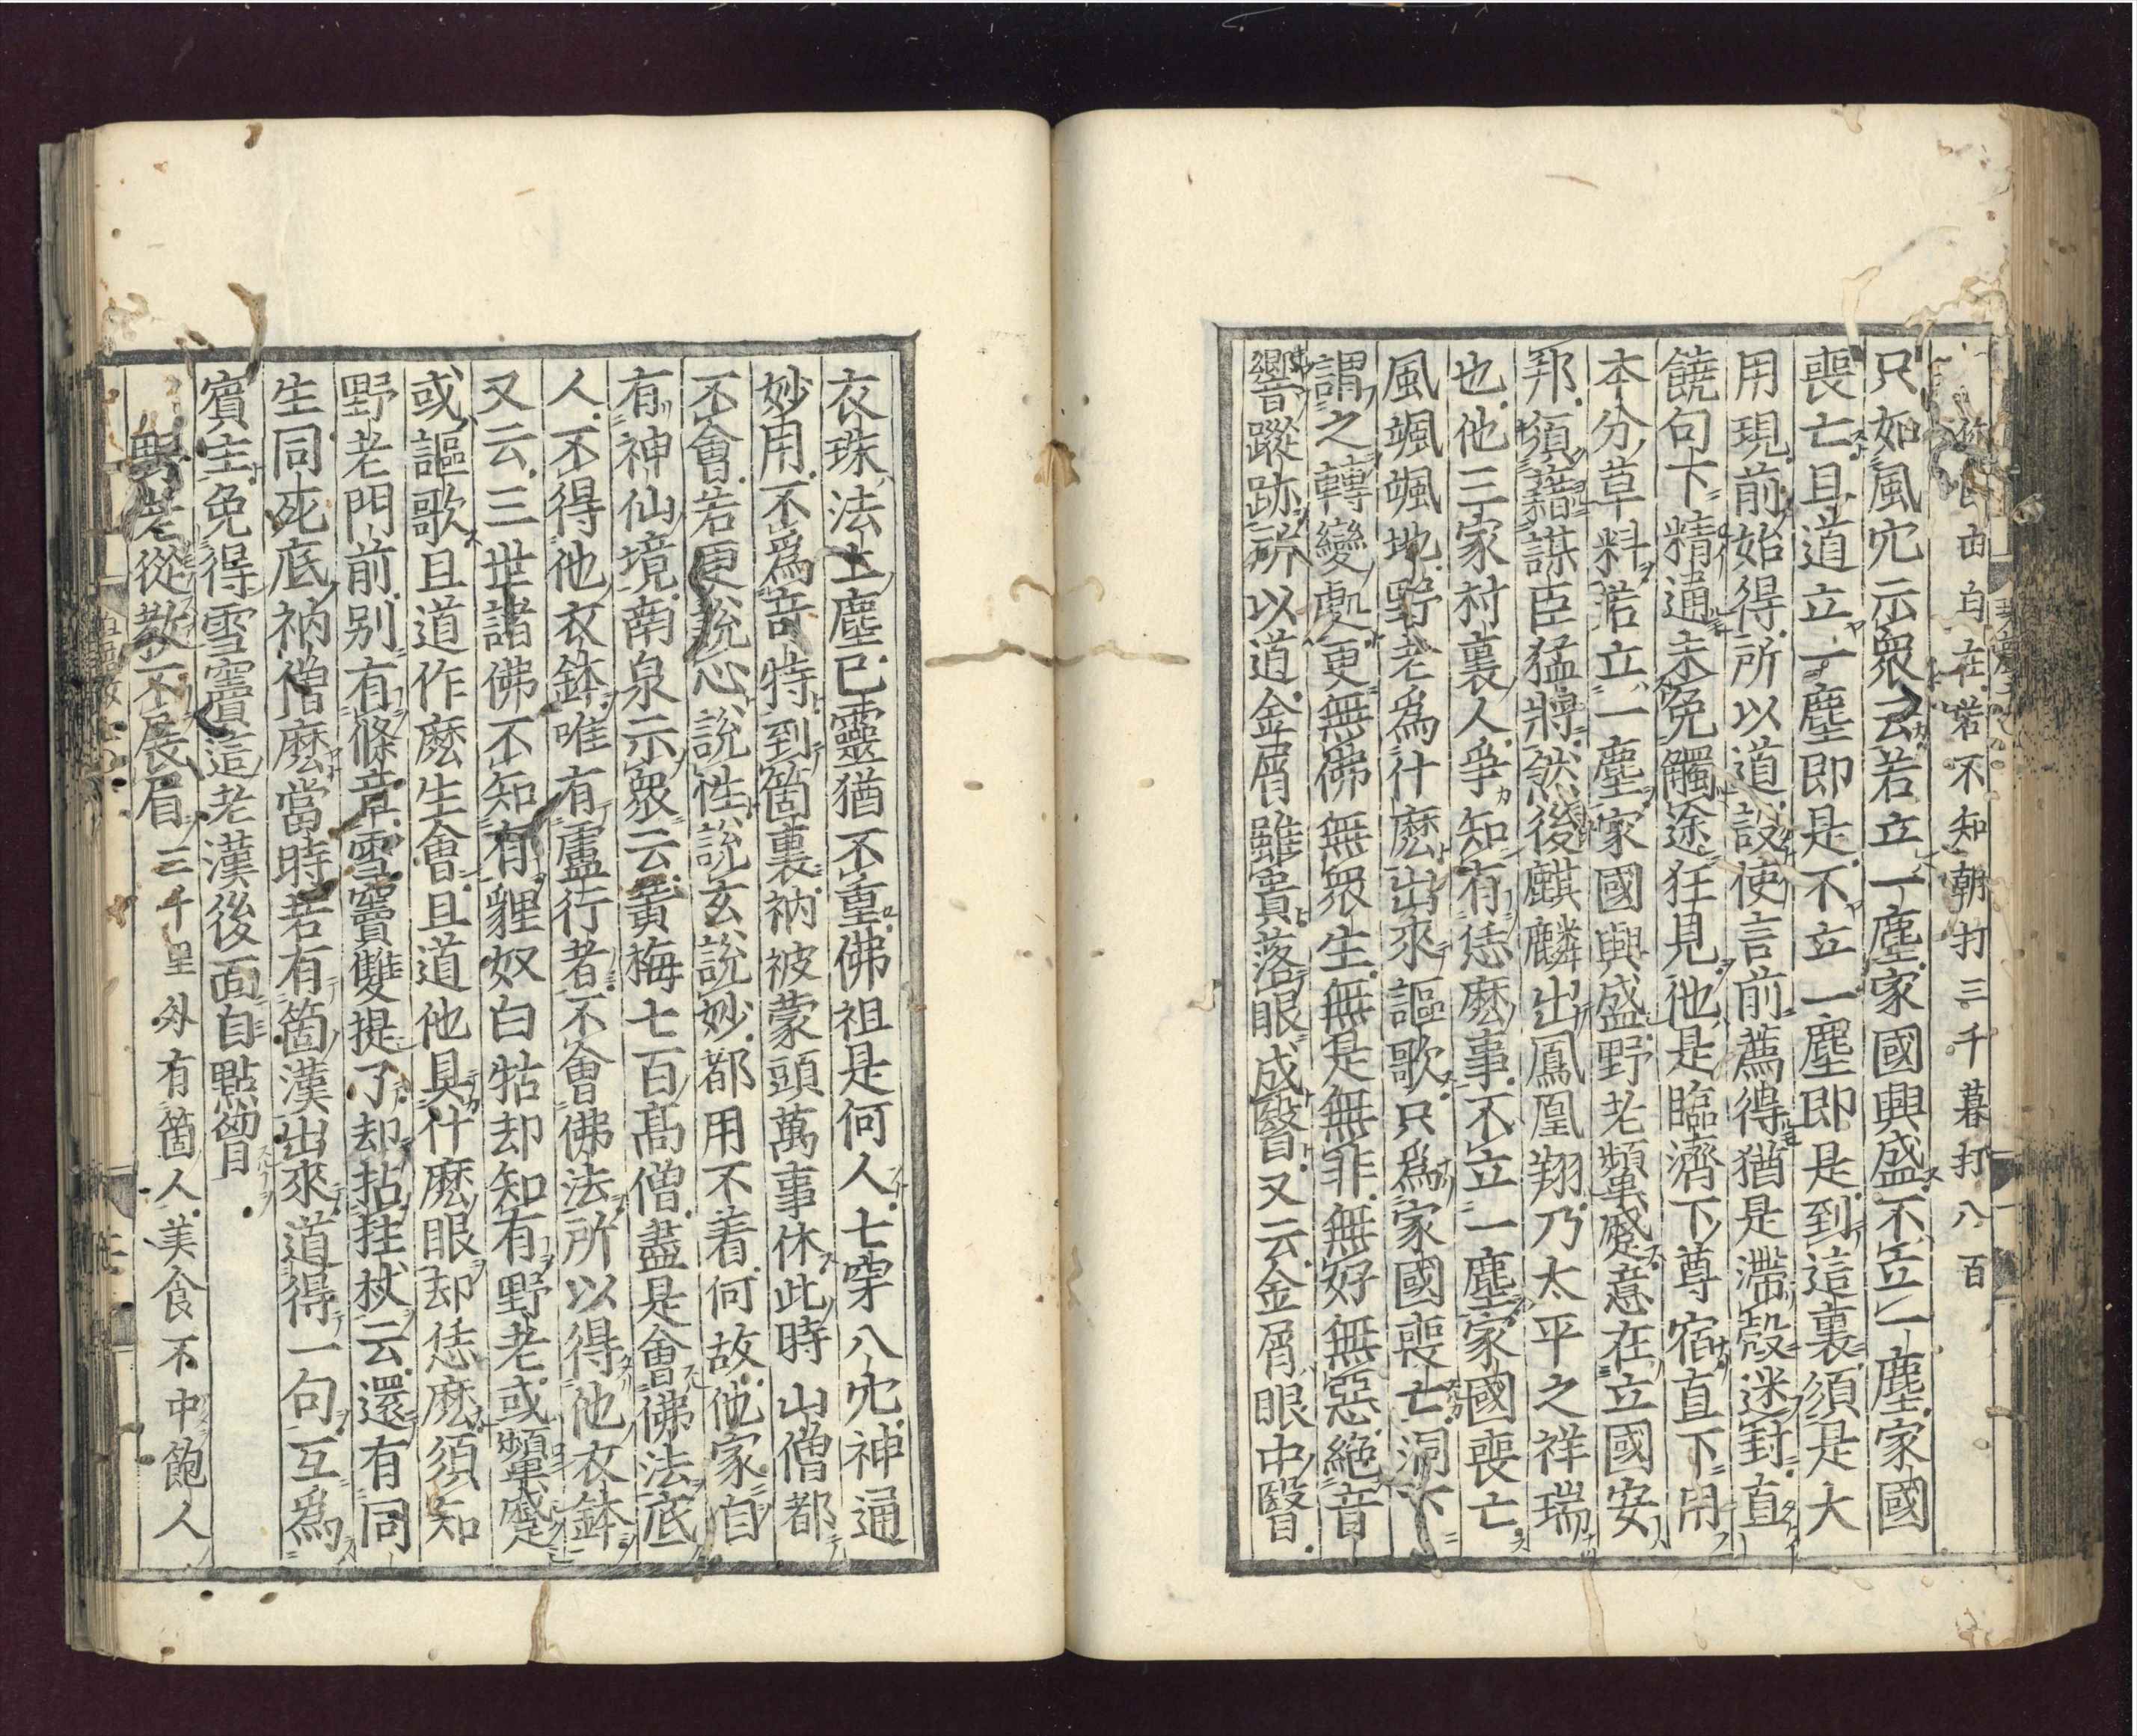 自由自在若不知朝打三千暮打八百
只如風穴示衆云若立一塵家國興盛不立一塵家國
喪亡且道立一塵即是不立一塵即是到這裏須是大
用現前始得所以道設使言前薦得猶是滯殼迷封直
饒句下精通未免觸途狂見他是臨濟下尊宿直下用
本分草料若立一塵家國興盛野老顰蹙意在立國安
邦須藉謀臣猛將然後麒麟出鳳凰翔乃太平之祥瑞
也他三家村裏人爭知有恁麽事不立一塵家國喪亡
風颯颯地野老爲什麽出來謳歌只爲家國喪亡洞下
謂之轉變處更無佛無衆生無是無非無好無惡絶音
響蹤跡所以道金屑雖貴落眼成瞖又云金屑眼中瞖
衣珠法上塵已靈猶不重佛祖是何人七穿八穴神通
妙用不爲奇特到箇裏衲被蒙頭萬事休此時山僧都
不會若更說心說性說玄說妙都用不着何故他家自
有神仙境南泉示衆云黃梅七百高僧盡是會佛法底
人不得他衣鉢唯有盧行者不會佛法所以得他衣鉢
又云三世諸佛不知有貍奴白牯却知有野老或顰蹙
或謳歌且道作麽生會且道他具什麽眼却恁麽須知
野老門前別有條章雪竇雙提了却拈拄杖云還有同
生同死底衲僧麽當時若有箇漢出來道得一句互爲
賓主免得雪竇這老漢後面自點胷
野老從教不展眉三千里外有箇人美食不中飽人